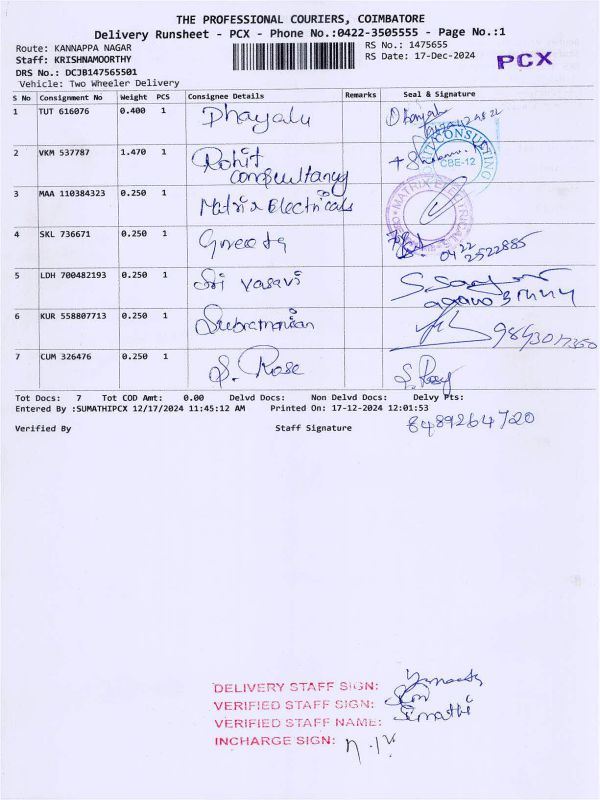 THE PROFESSIONAL COURIERS, COIMBATORE
Delivery Runsheet - PCX - Phone No.:0422-3505555 - Page No.:1
Route: KANNAPPA NAGAR
RS No.: 1475655
Staff: KRISHNAMOORTHY
RS Date: 17-Dec-2024
PCX
DRS No.: DCJB147565501
Vehicle: Two Wheeler Delivery
S No Consignment No Weight PCS Consignee Details Remarks Seal & Signature
1 TUT 616076 0.400 1 Dhayalu Dhayalu
2 VKM 537787 1.470 1 Rohit Consultancy CONSULTING CBE-12
3 MAA 110384323 0.250 1 Matrix Electricals MATRIX ELECTRICALS
4 SKL 736671 0.250 1 0422 2522885
5 LDH 700482193 0.250 1 Sri Vasavi
6 KUR 558807713 0.250 1 Subramanian
7 CUM 326476 0.250 1 S. Rose S. Rose
Tot Docs: 7 Tot COD Amt: 0.00 Delvd Docs: Non Delvd Docs: Delvy Pts:
Entered By :SUMATHIPCX 12/17/2024 11:45:12 AM Printed On: 17-12-2024 12:01:53
Verified By Staff Signature 8489264720
DELIVERY STAFF SIGN:
VERIFIED STAFF SIGN:
VERIFIED STAFF NAME: Sumathi
INCHARGE SIGN: